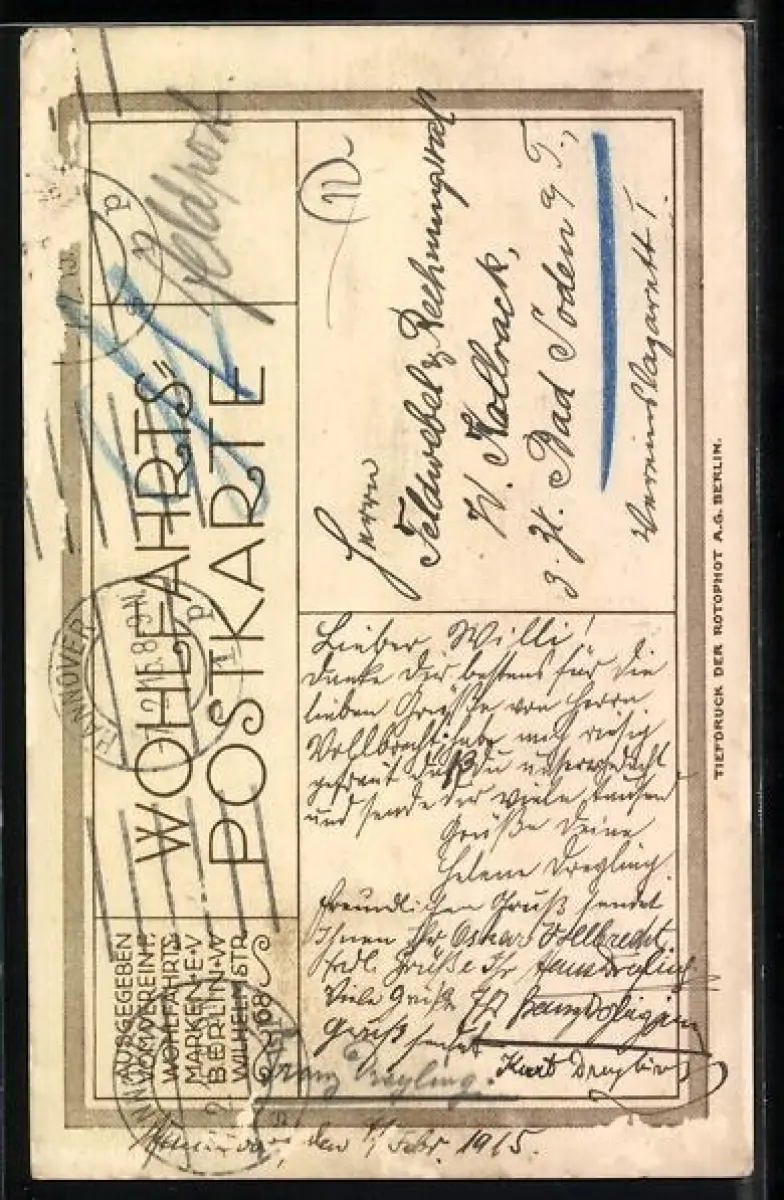 Feldpost
WOHLFAHRTS=
POSTKARTE
AUSGEGEBEN
VOM VEREIN F.
WOHLFAHRTS
MARKEN·E·V
BERLIN·W
WILHELMSTR.
68
HANNOVER
2.15.8-9N.
11
Herrn
Feldwebel &
W. Kollrack,
z. Zt. Bad Soden a/T.,
Vereinslazarett I.
Lieber Willi!
Danke Dir bestens für die
lieben Grüße von Herrn
Vollbrecht, habe mich riesig
gefreut daß Du unser gedacht
und sende Dir viele tausend
Grüße Deine
Helene Dreyling.
Freundlichen Gruß sendet
Ihnen Ihr Oskar Vollbrecht.
Frdl. Grüße Ihr Hans Dreyling
Viele Grüße Ihr
Gruß sendet
Franz Dreyling.
Kurt Dreyling
Hannover, den Febr. 1915.
TIEFDRUCK DER ROTOPHOT A.G. BERLIN.